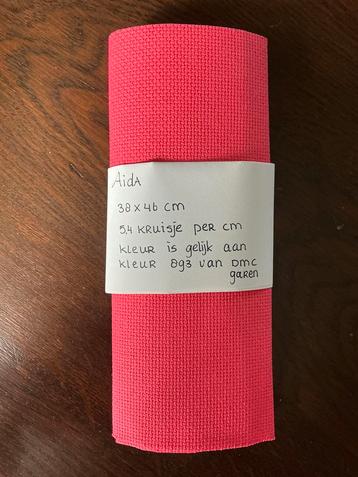 AidA
38 x 46 cm
5,4 KRuisje peR cm
kleuR is gelijk aan
kleuR 893 van Dmc
gaRen